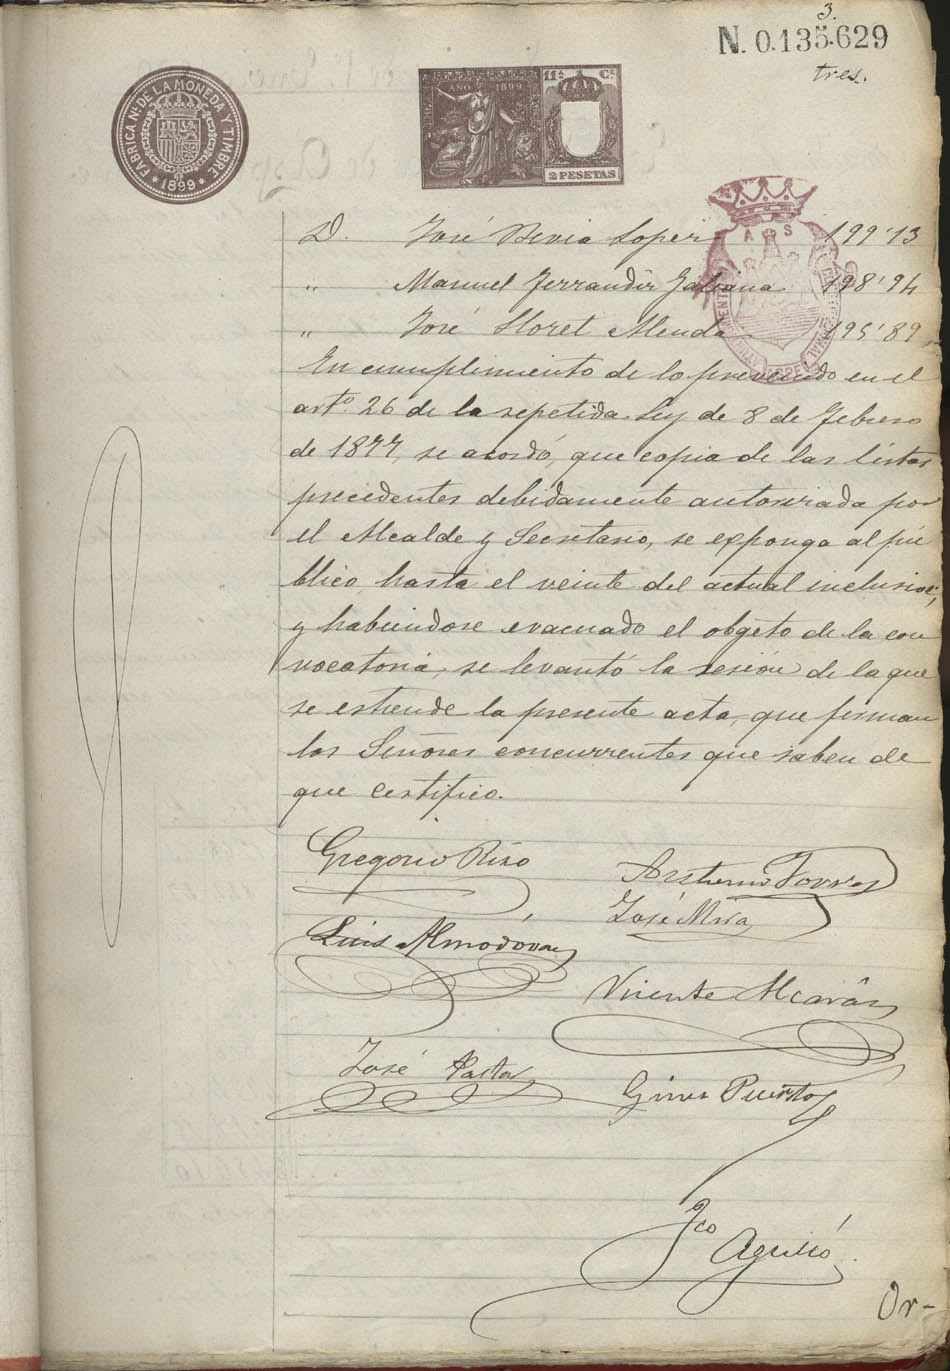 3.
N. 0.135.629
tres.
FABRICA NL DE LA MONEDA Y TIMBRE
* 1899 *
AÑO 1899
11ª Cª
2 PESETAS
A S
D. José Bevia Loper 199'13
" Manuel Ferrandir Galiana 198'94
" José Lloret Alenda 195'89,
En cumplimiento de lo prevenido en el
artº 26 de la repetida Ley de 8 de Febrero
de 1877, se acordó, que copia de las listas
precedentes debidamente autorizada por
el Alcalde y Secretario, se exponga al pú
blico, hasta el veinte del actual inclusive;
y habiendose evacuado el obgeto de la con
vocatoria, se levantó la sesión de la que
se estiende la presente acta, que firman
los Señores concurrentes que saben de
que certifico.
Gregorio Rizo
Arturo Torres
José Mira
Luis Almodóvar
Vicente Alcaráz
José Pastor
Gines Puerto
Fco Agulló.
Or-